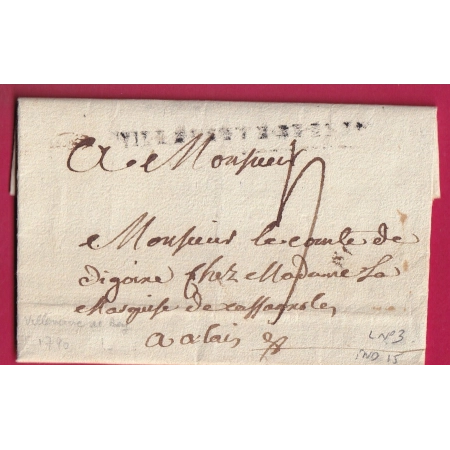 A Monsieur
Monsieur le comte de
digoine Chez Madame La
Marquise de cassagnoles
a alais
Villeneuve de
1790
L N°3
IND 15